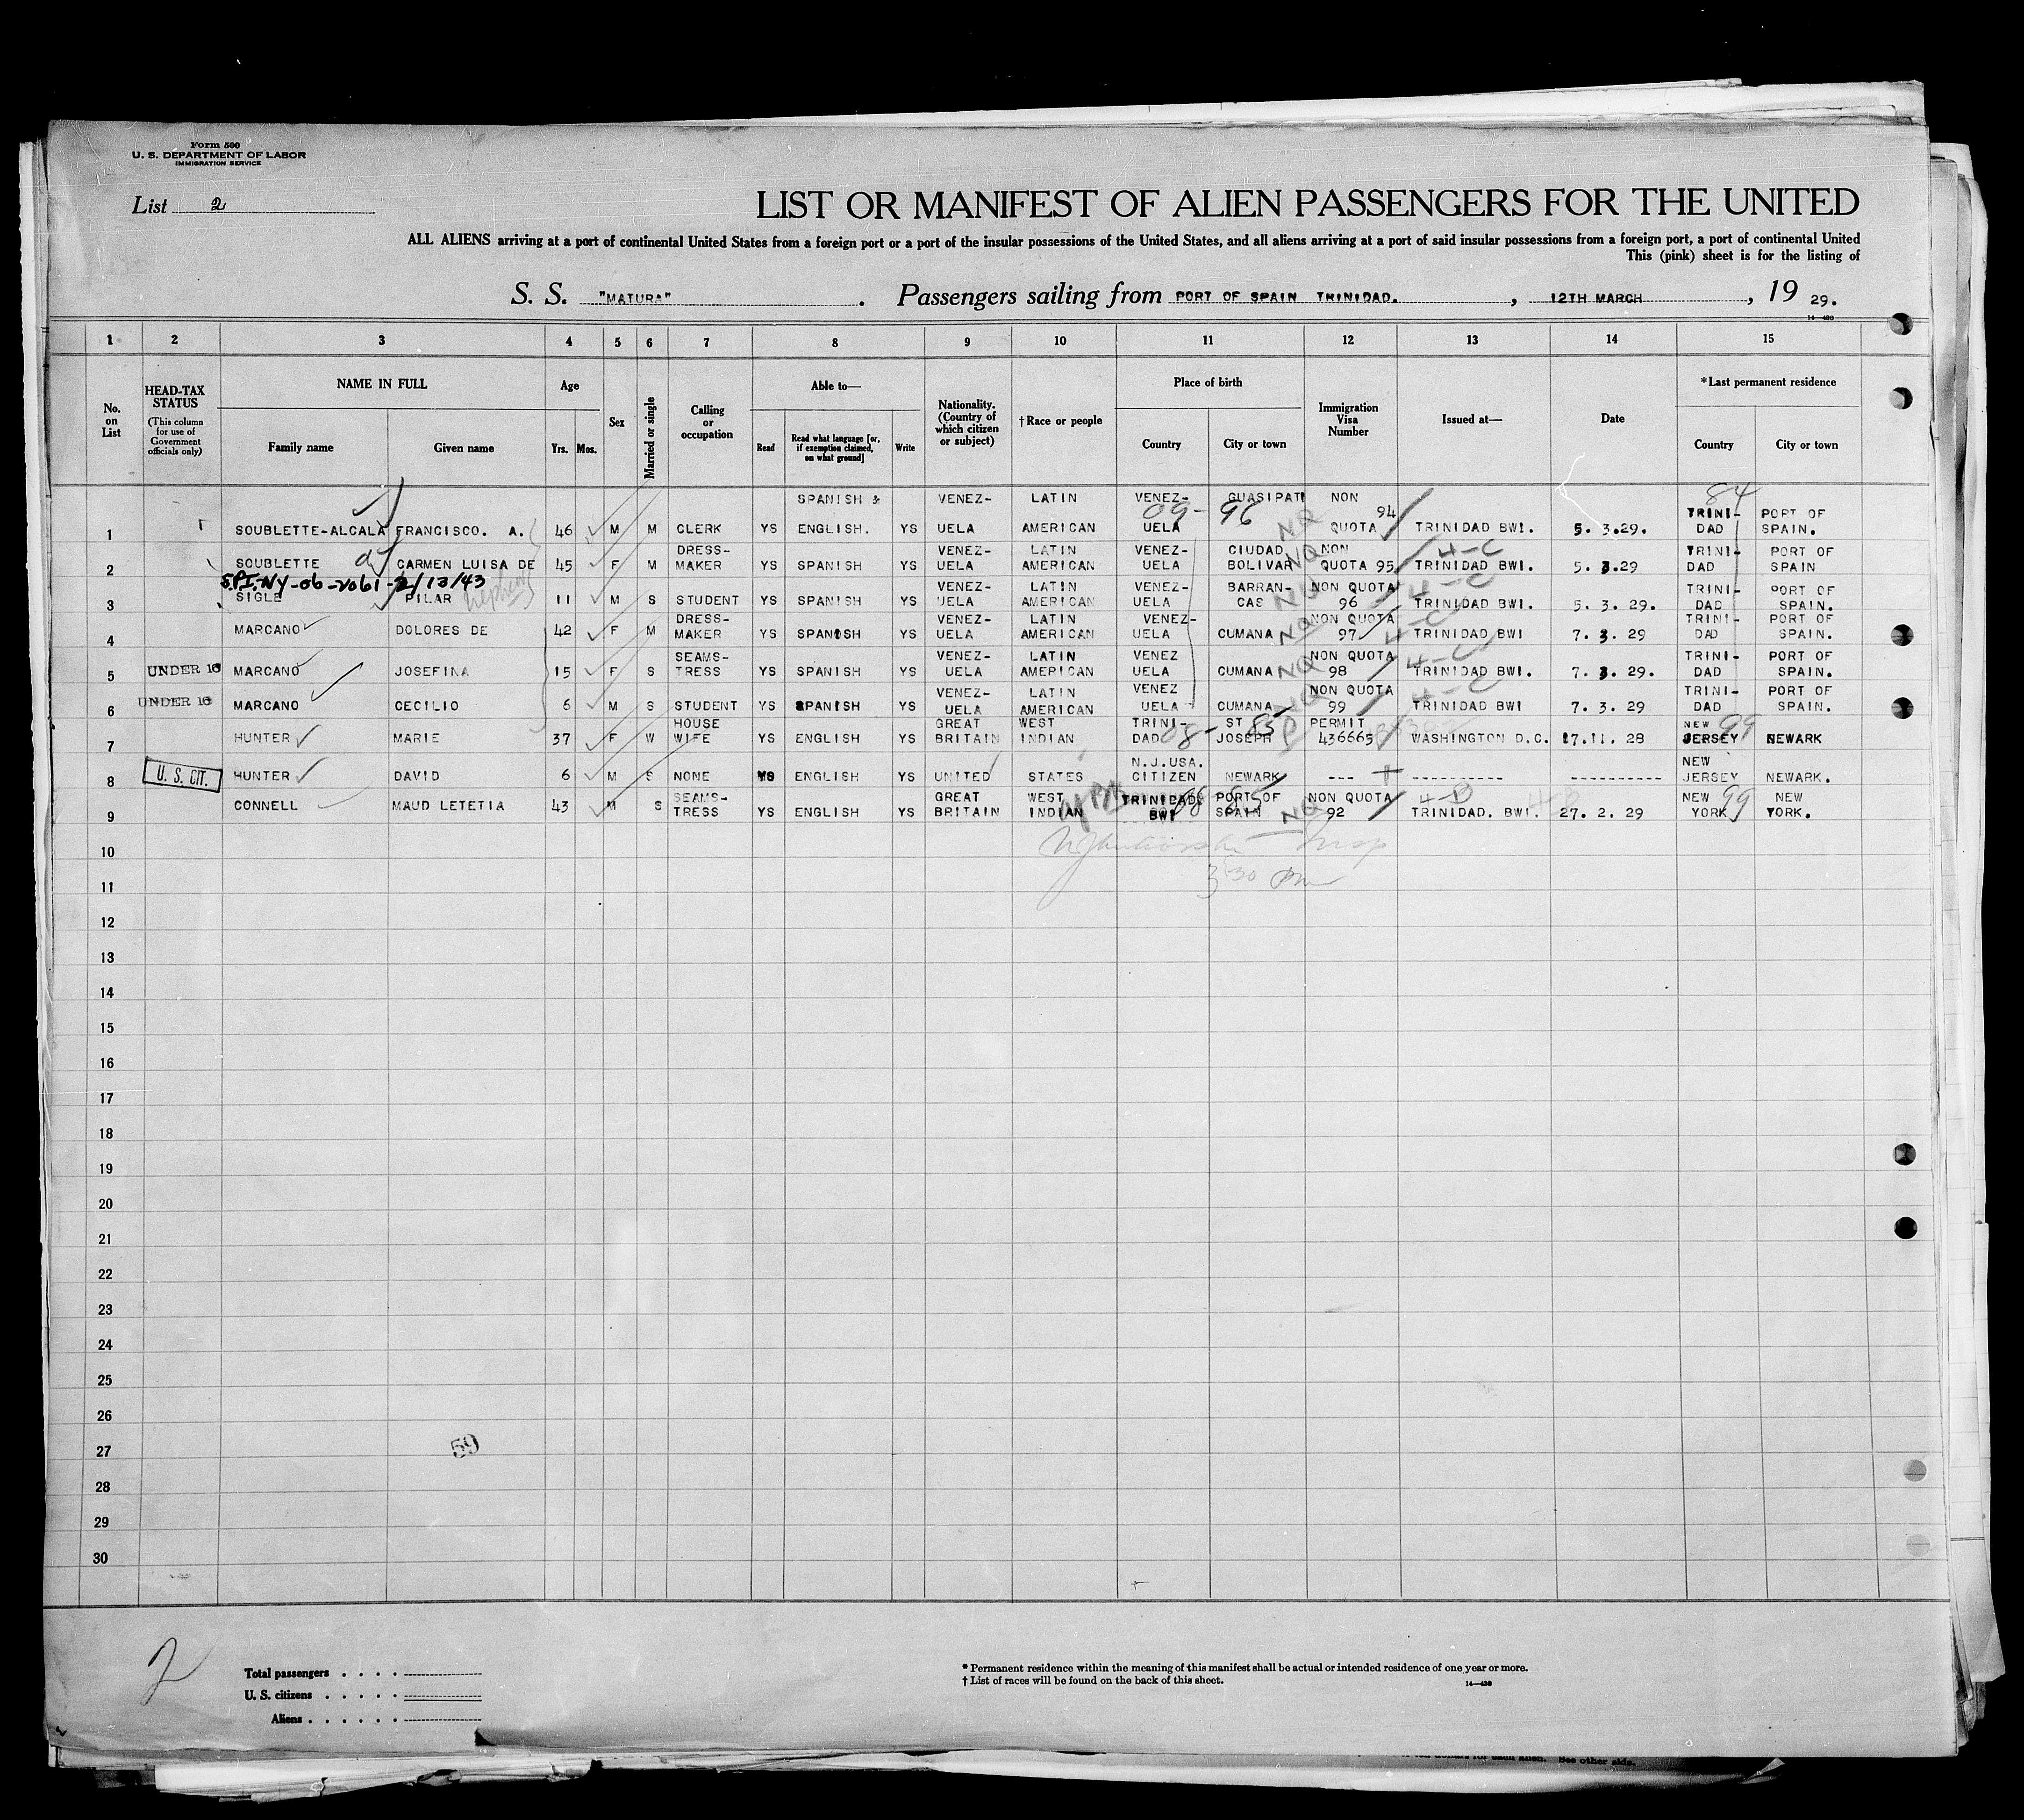 Form 500
U. S. DEPARTMENT OF LABOR
IMMIGRATION SERVICE
List 2
LIST OR MANIFEST OF ALIEN PASSENGERS FOR THE UNITED
ALL ALIENS arriving at a port of continental United States from a foreign port or a port of the insular possessions of the United States, and all aliens arriving at a port of said insular possessions from a foreign port, a port of continental United
This (pink) sheet is for the listing of
S. S. "MATURA" . Passengers sailing from PORT OF SPAIN TRINIDAD. , 12TH MARCH , 19 29.
14—430
1 2 3 4 5 6 7 8 9 10 11 12 13 14 15
No. on List
HEAD-TAX STATUS
(This column for use of Government officials only)
NAME IN FULL
Family name Given name
Age
Yrs. Mos.
Sex
Married or single
Calling or occupation
Able to—
Read
Read what language [or, if exemption claimed, on what ground]
Write
Nationality. (Country of which citizen or subject)
†Race or people
Place of birth
Country City or town
Immigration Visa Number
Issued at—
Date
*Last permanent residence
Country City or town
SPANISH & VENEZ- LATIN VENEZ- GUASIPATI NON 84
09- 96 94 TRINI- PORT OF
1 SOUBLETTE-ALCALA FRANCISCO. A. 46 M M CLERK YS ENGLISH. YS UELA AMERICAN UELA NQ QUOTA TRINIDAD BWI. 5. 3.29. DAD SPAIN.
DRESS- VENEZ- LATIN VENEZ- CIUDAD NON 4-C TRINI- PORT OF
2 SOUBLETTE CARMEN LUISA DE 45 F M MAKER YS SPANISH YS UELA AMERICAN UELA BOLIVAR NQ QUOTA 95 TRINIDAD BWI. 5. 3.29 DAD SPAIN
S.P.I.-NY-06-2061-2/13/43 VENEZ- LATIN VENEZ- BARRAN- NON QUOTA 4-C TRINI- PORT OF
3 SIGLE PILAR nephew 11 M S STUDENT YS SPANISH YS UELA AMERICAN UELA CAS NQ 96 TRINIDAD BWI. 5. 3. 29. DAD SPAIN.
DRESS- VENEZ- LATIN VENEZ- NON QUOTA 4-C TRINI- PORT OF
4 MARCANO DOLORES DE 42 F M MAKER YS SPANISH YS UELA AMERICAN UELA CUMANA NQ 97 TRINIDAD BWI 7. 3. 29 DAD SPAIN.
SEAMS- VENEZ- LATIN VENEZ NON QUOTA 4-C TRINI- PORT OF
5 UNDER 16 MARCANO JOSEFINA 15 F S TRESS YS SPANISH YS UELA AMERICAN UELA CUMANA NQ 98 TRINIDAD BWI. 7. 3. 29. DAD SPAIN.
VENEZ- LATIN VENEZ NON QUOTA 4-C TRINI- PORT OF
6 UNDER 16 MARCANO CECILIO 6 M S STUDENT YS SPANISH YS UELA AMERICAN UELA CUMANA NQ 99 TRINIDAD BWI 7. 3. 29 DAD SPAIN.
HOUSE GREAT WEST TRINI- ST PERMIT NEW 99
7 HUNTER MARIE 37 F W WIFE YS ENGLISH YS BRITAIN INDIAN DAD 08- 85 JOSEPH P 436665 WASHINGTON D.C. 17.11. 28 JERSEY NEWARK
N.J.USA. NEW
8 U. S. CIT. HUNTER DAVID 6 M S NONE YS ENGLISH YS UNITED STATES CITIZEN NEWARK --- ---------- ---------- JERSEY NEWARK.
SEAMS- GREAT WEST TRINIDAD. PORT OF NON QUOTA 4-D NEW 99 NEW
9 CONNELL MAUD LETETIA 43 M S TRESS YS ENGLISH YS BRITAIN INDIAN BWI 08 85 SPAIN NQ 92 TRINIDAD. BWI. 27. 2. 29 YORK YORK.
Insp
10
3:30 PM
11
12
13
14
15
16
17
18
19
20
21
22
23
24
25
26
27 59
28
29
30
2
Total passengers . . . .
U. S. citizens . . . . .
Aliens . . . . . .
* Permanent residence within the meaning of this manifest shall be actual or intended residence of one year or more.
† List of races will be found on the back of this sheet.
14—430
See other side.